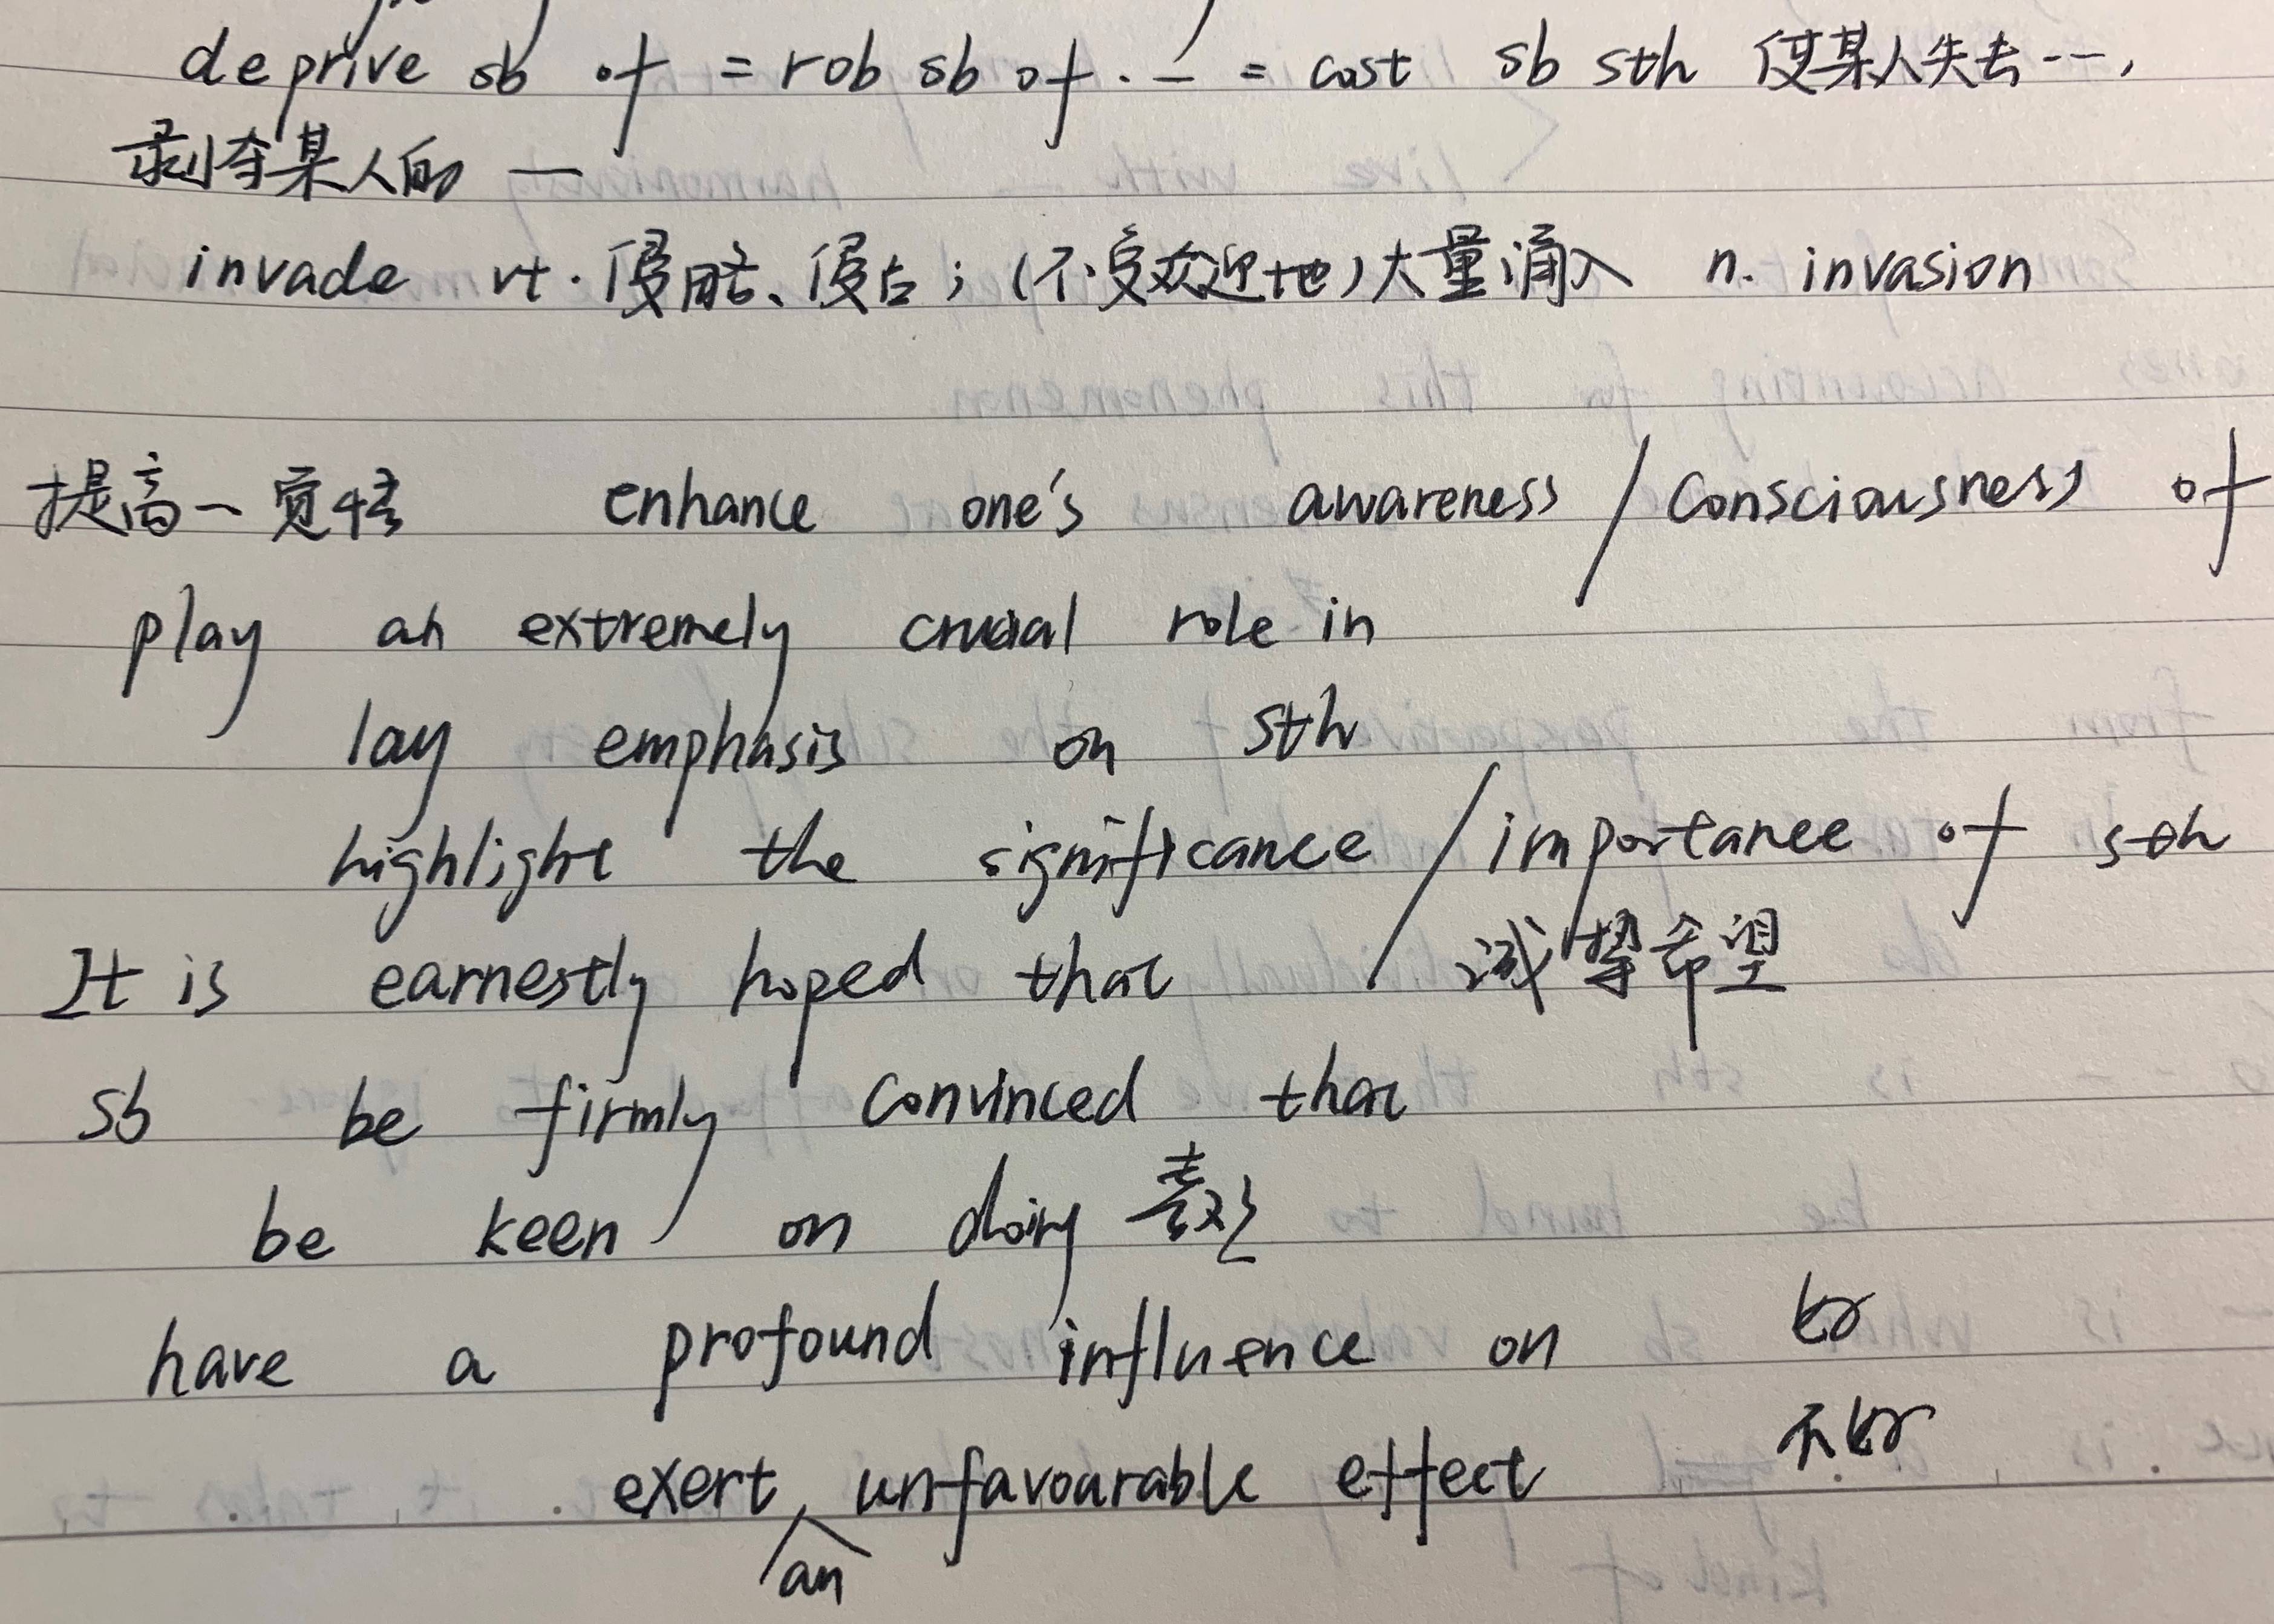 deprive sb of = rob sb of ·— = cost sb sth 使某人失去---,
剥夺某人的 —
invade vt. 侵略、侵占；(不受欢迎地)大量涌入 n. invasion
提高一觉悟 enhance one's awareness / consciousness of
play an extremely crucial role in
lay emphasis on sth
highlight the significance / importance of sth
It is earnestly hoped that 诚挚希望
sb be firmly convinced that
be keen on doing 喜欢
have a profound influence on 好
exert unfavourable effect 不好
an